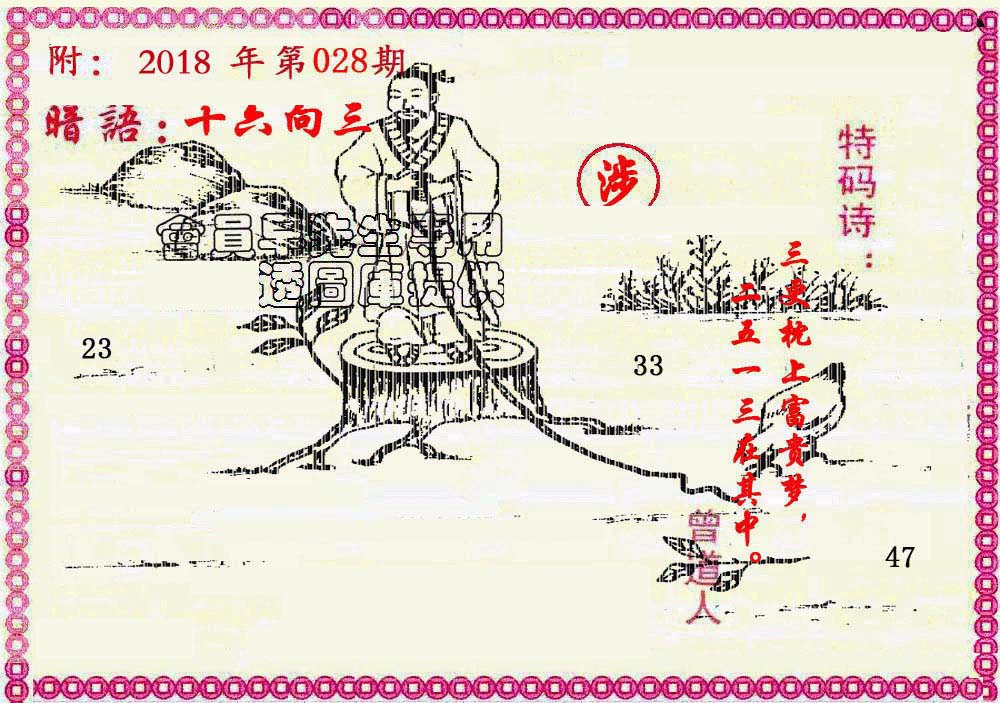 附： 2018 年第028期
暗語：十六向三
涉
特码诗：
三更枕上富贵梦，
二五一三在其中。
曾道人
會員三先生專用
透圖庫提供
23
33
47